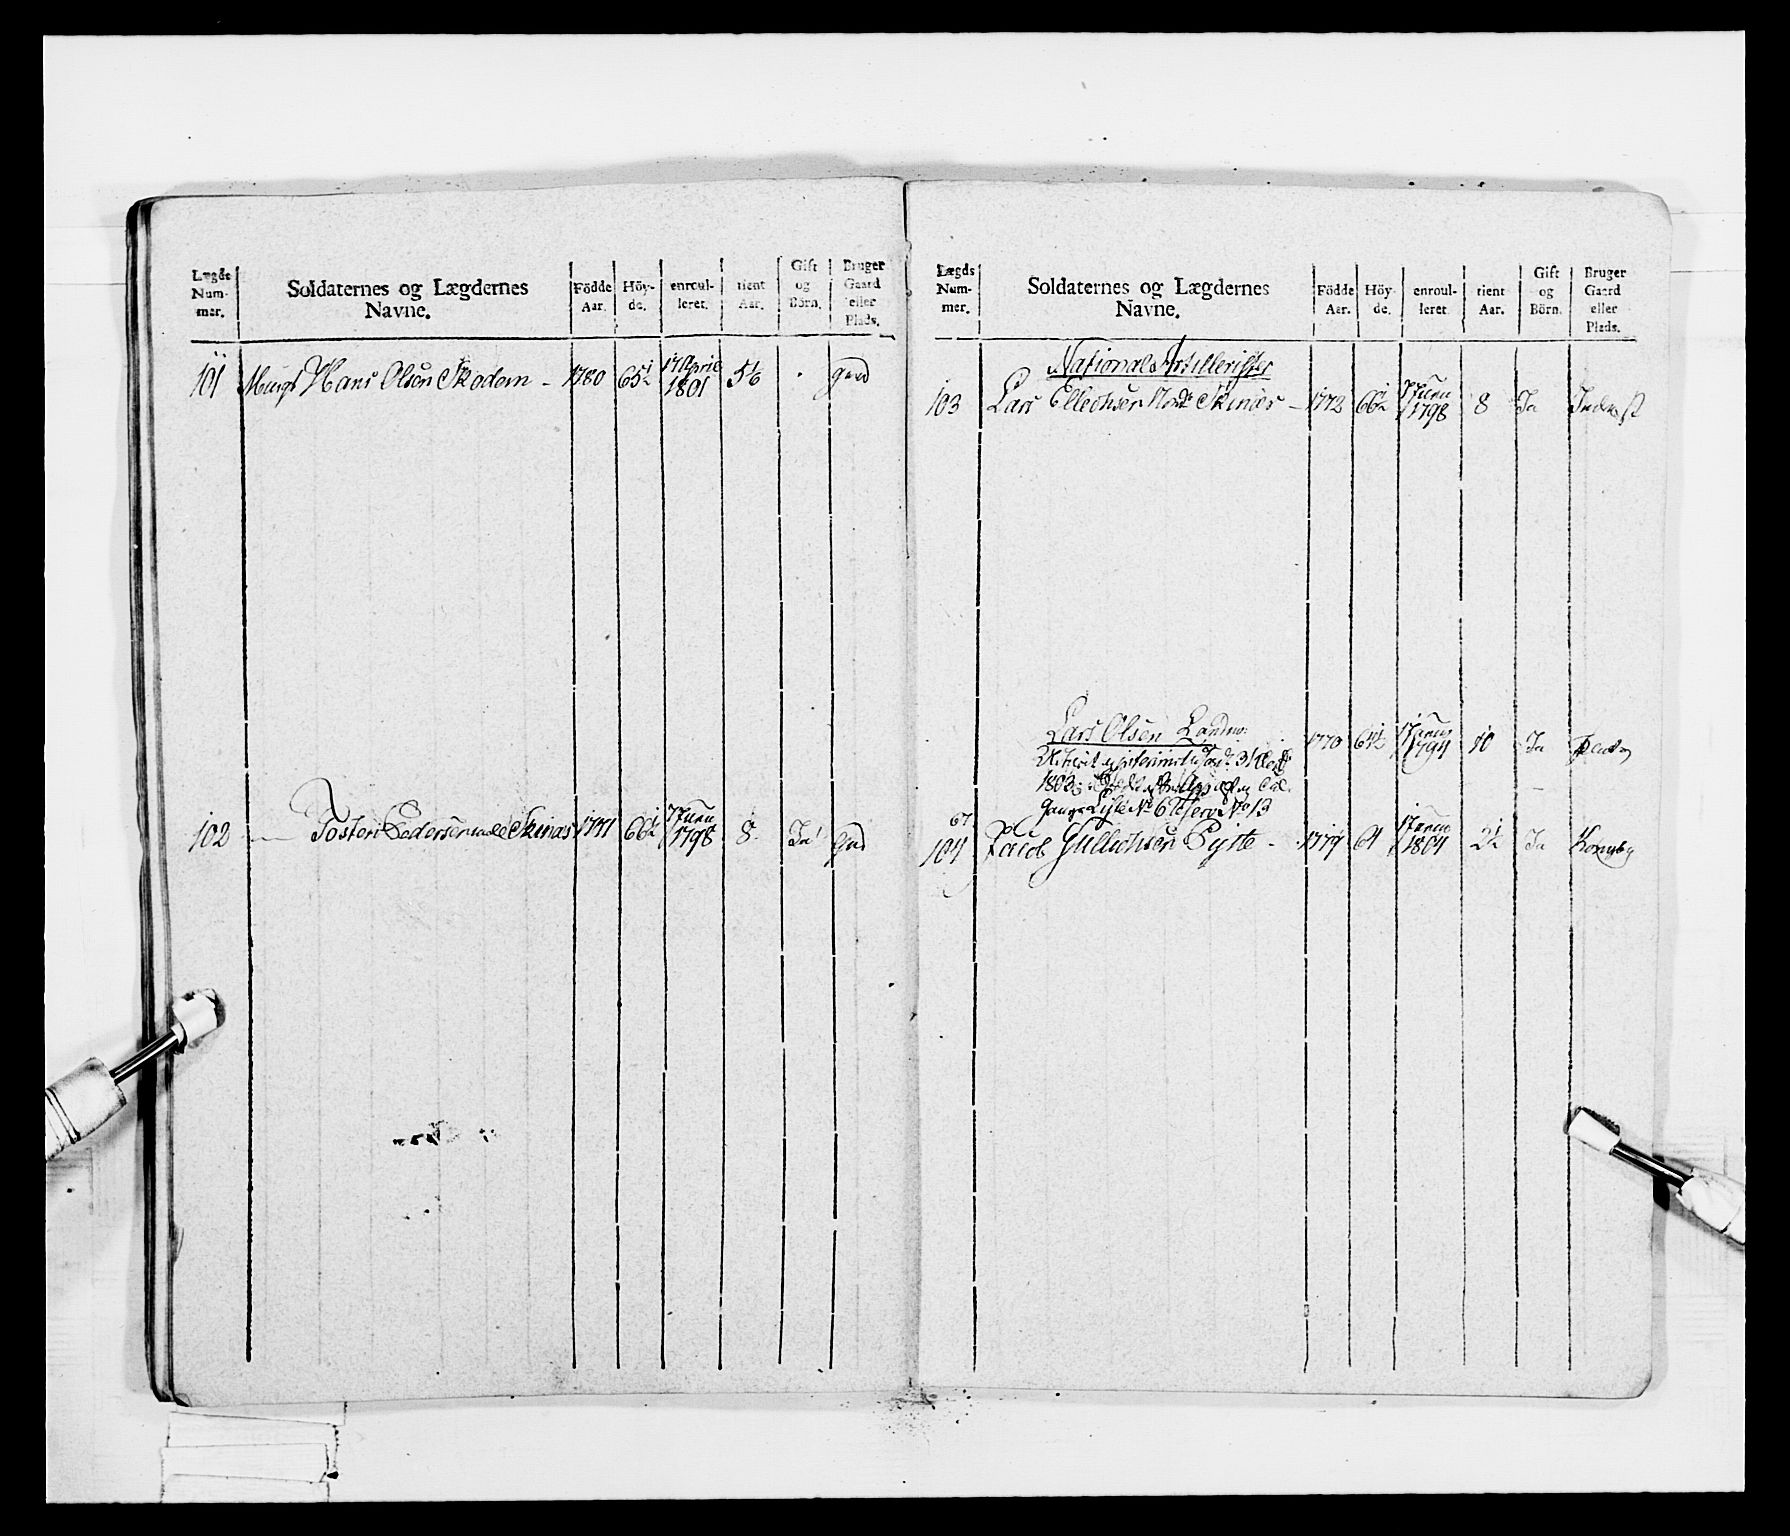 Lægds Num- mer.
Soldaternes og Lægdernes Navne.
Födde Aar.
Höy- de.
enroul- leret.
tient Aar.
Gift og Börn.
Bruger Gaard eller Plads.
101 Hans Olsen Skodem - 1780 65½ 17 April 1801 5 1/6 Gaard
102 Tosten Pedersen Skinas 1771 66½ 7 Juni 1798 8 Ja Gad
Lægds Num- mer.
Soldaternes og Lægdernes Navne.
Födde Aar.
Höy- de.
enroul- leret.
tient Aar.
Gift og Börn.
Bruger Gaard eller Plads.
National Artillerister
103 Lars Ellechsen Nordr Skinæs - 1772 66½ 7 Juni 1798 8 Ja Inderst
Lars Olsen 1770 64½ 17 1794 10 Ja
1803
No 6 No 13
67
104 Gullichsen - 1779 64 17 1804 2½ Ja Kongsby